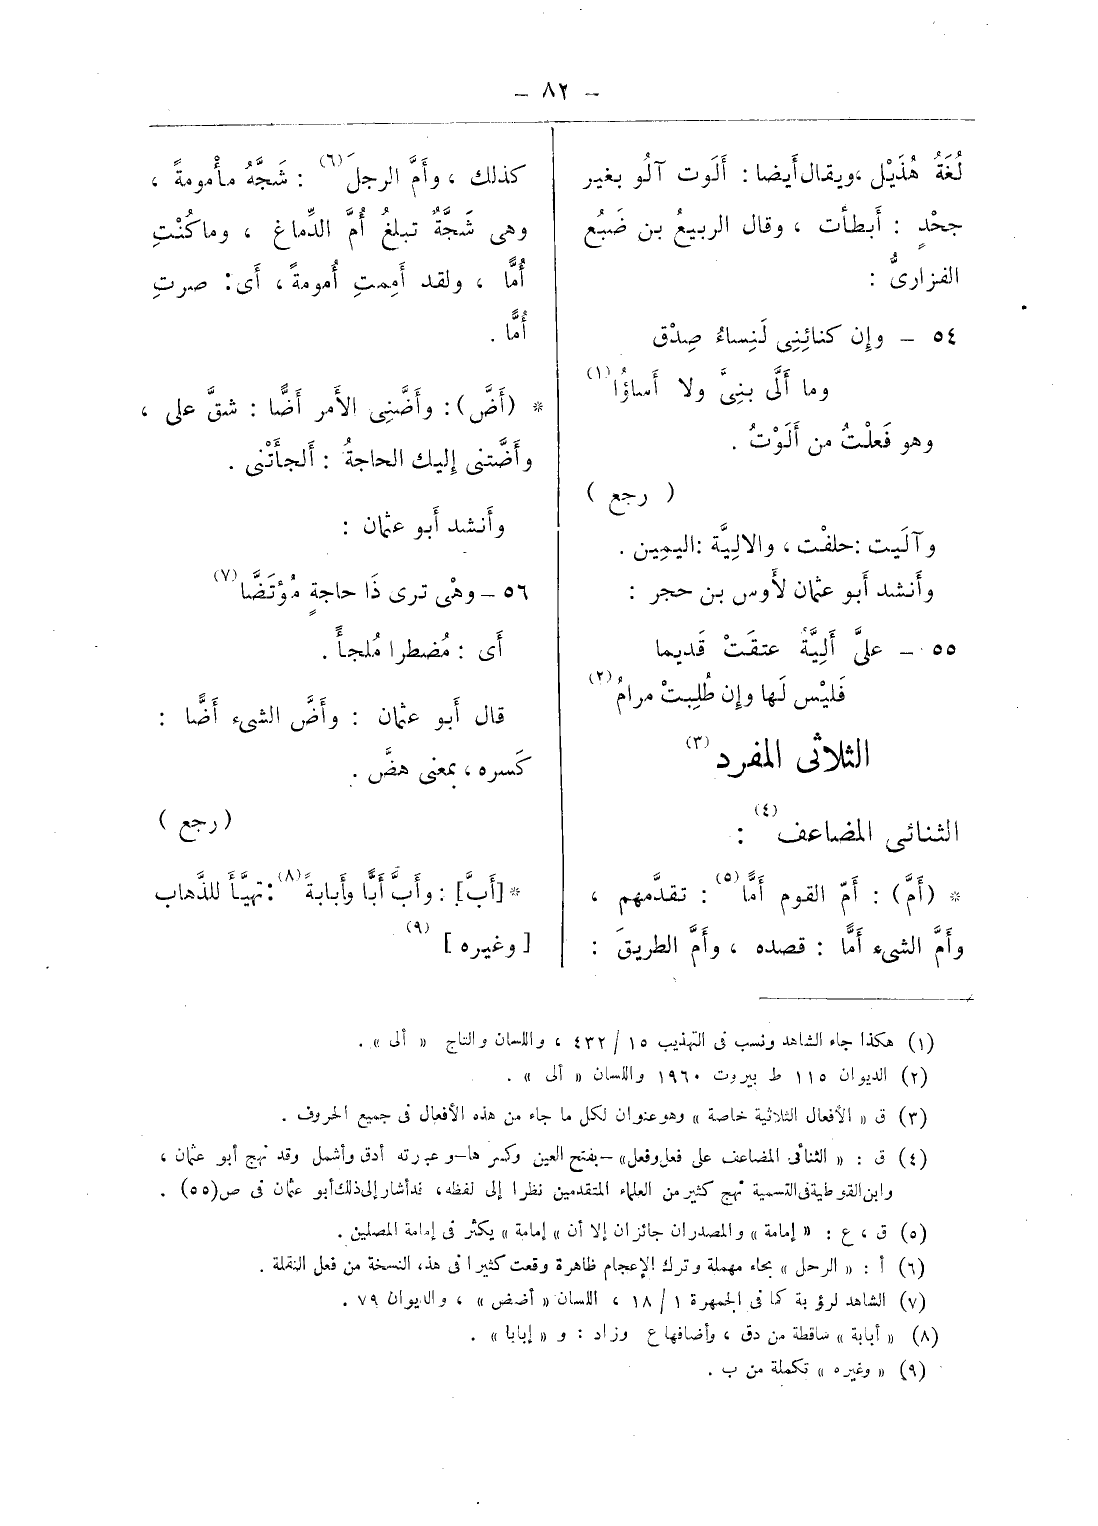 – ٨٢ –
لُغَةُ هُذَيْل ،ويقال أَيضا : أَلَوت آلُو بغير
جحْدٍ : أَبطأت ، وقال الربيعُ بن ضَبُع
الفزارىُّ :
٥٤ – وإِن كنائِنِى لَنِساءُ صِدْق
وما أَلَّى بنِىَّ ولا أَساؤُا (١)
وهو فَعلْتُ من أَلَوْتُ .
( رجع )
وآلَيت :حلفْت ، والالِيَّة :اليمِين .
وأَنشد أَبو عثمان لأَوس بن حجر :
٥٥ – علىَّ أَلِيَّةٌ عتقَتْ قَديما
فَليْس لَها وإِن طُلِبتْ مرامُ (٢)
الثلاثى المفرد (٣)
الثنائى المضاعف (٤) :
* (أَمَّ) : أَمّ القوم أَمًّا (٥) : تقدَّمهم ،
وأَمَّ الشىء أَمًّا : قصده ، وأَمَّ الطريقَ :
كذلك ، وأَمَّ الرجلَ (٦) : شَجَّهُ مأْمومةً ،
وهى شَجَّةٌ تبلغُ أُمَّ الدِّماغ ، وماكُنْتِ
أُمًّا ، ولقد أَمِمتِ أُمومةً ، أَى : صرتِ
أُمًّا .
* (أَضَّ) : وأَضَّنِى الأَمر أَضًّا : شقَّ على ،
وأَضَّتنى إِليك الحاجةُ : أَلجأَتْنى .
وأَنشد أَبو عثمان :
٥٦ – وهْى ترى ذَا حاجةٍ مُؤتَضَّا (٧)
أَى : مُضطرا مُلجأً .
قال أَبو عثمان : وأَضَّ الشىء أَضًّا :
كَسره ، بمعنى هضَّ .
( رجع )
* [أَبَّ] : وأَبَّ أَبًّا وأَبابةً (٨) : تهيَّأَ للذَّهاب
[ وغيره ] (٩)
(١) هكذا جاء الشاهد ونسب فى التهذيب ١٥ / ٤٣٢ ، واللسان والتاج « ألى » .
(٢) الديوان ١١٥ ط بيروت ١٩٦٠ واللسان « ألى » .
(٣) ق « الأفعال الثلاثية خاصة » وهو عنوان لكل ما جاء من هذه الأفعال فى جميع الحروف .
(٤) ق : « الثنائى المضاعف على فعل وفعل» – بفتح العين وكسرها – وعبارته أدق وأشمل وقد نهج أبو عثمان ،
وابن القوطية فى التسمية نهج كثير من العلماء المتقدمين نظرا إلى لفظه، قد أشار إلى ذلك أبو عثمان فى ص (٥٥) .
(٥) ق ، ع : « إمامة » والمصدران جائزان إلا أن « إمامة » يكثر فى إمامة المصلين .
(٦) أ : « الرحل » بحاء مهملة وترك الإعجام ظاهرة وقعت كثيرا فى هذه النسخة من فعل النقلة .
(٧) الشاهد لرؤبة كما فى الجمهرة ١ / ١٨ ، اللسان « أضض » ، والديوان ٧٩ .
(٨) « أبابة » ساقطة من دق ، وأضافها ع وزاد : و « إبابا » .
(٩) « وغيره » تكملة من ب .